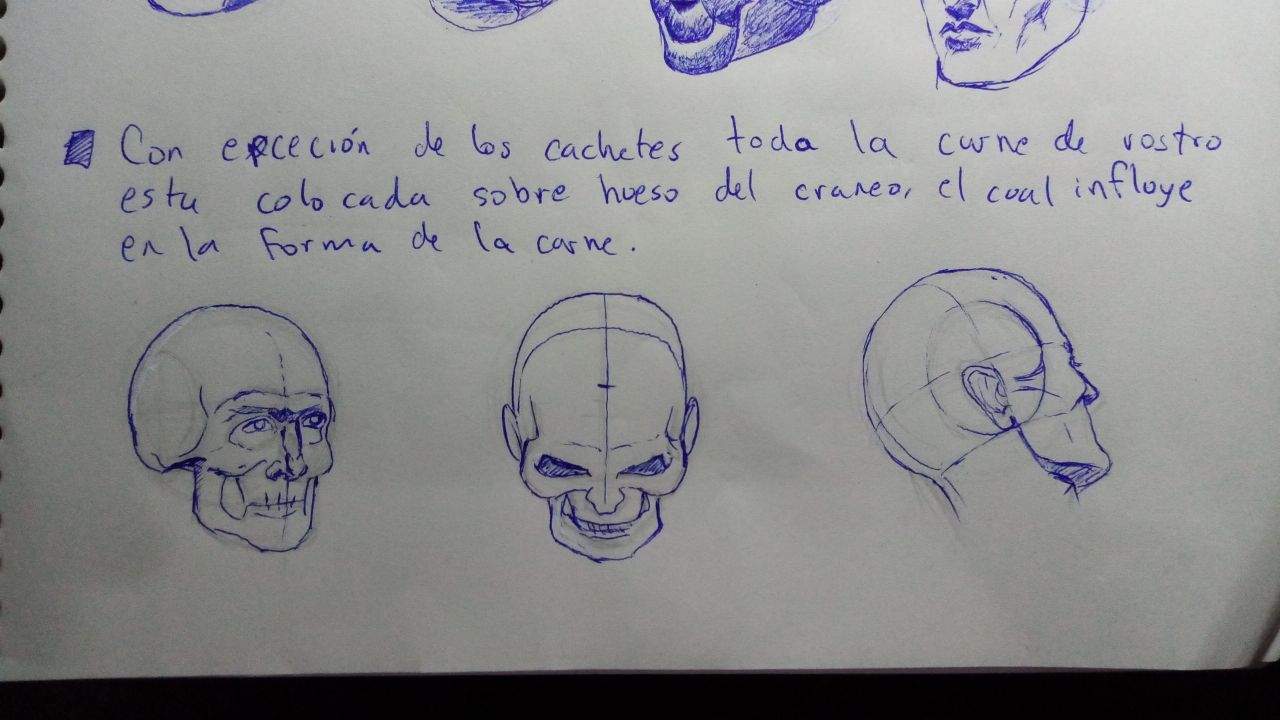 Con epceción de los cachetes toda la curne de rostro
esta colocada sobre hueso del craneo, el cual influye
en la forma de la carne.